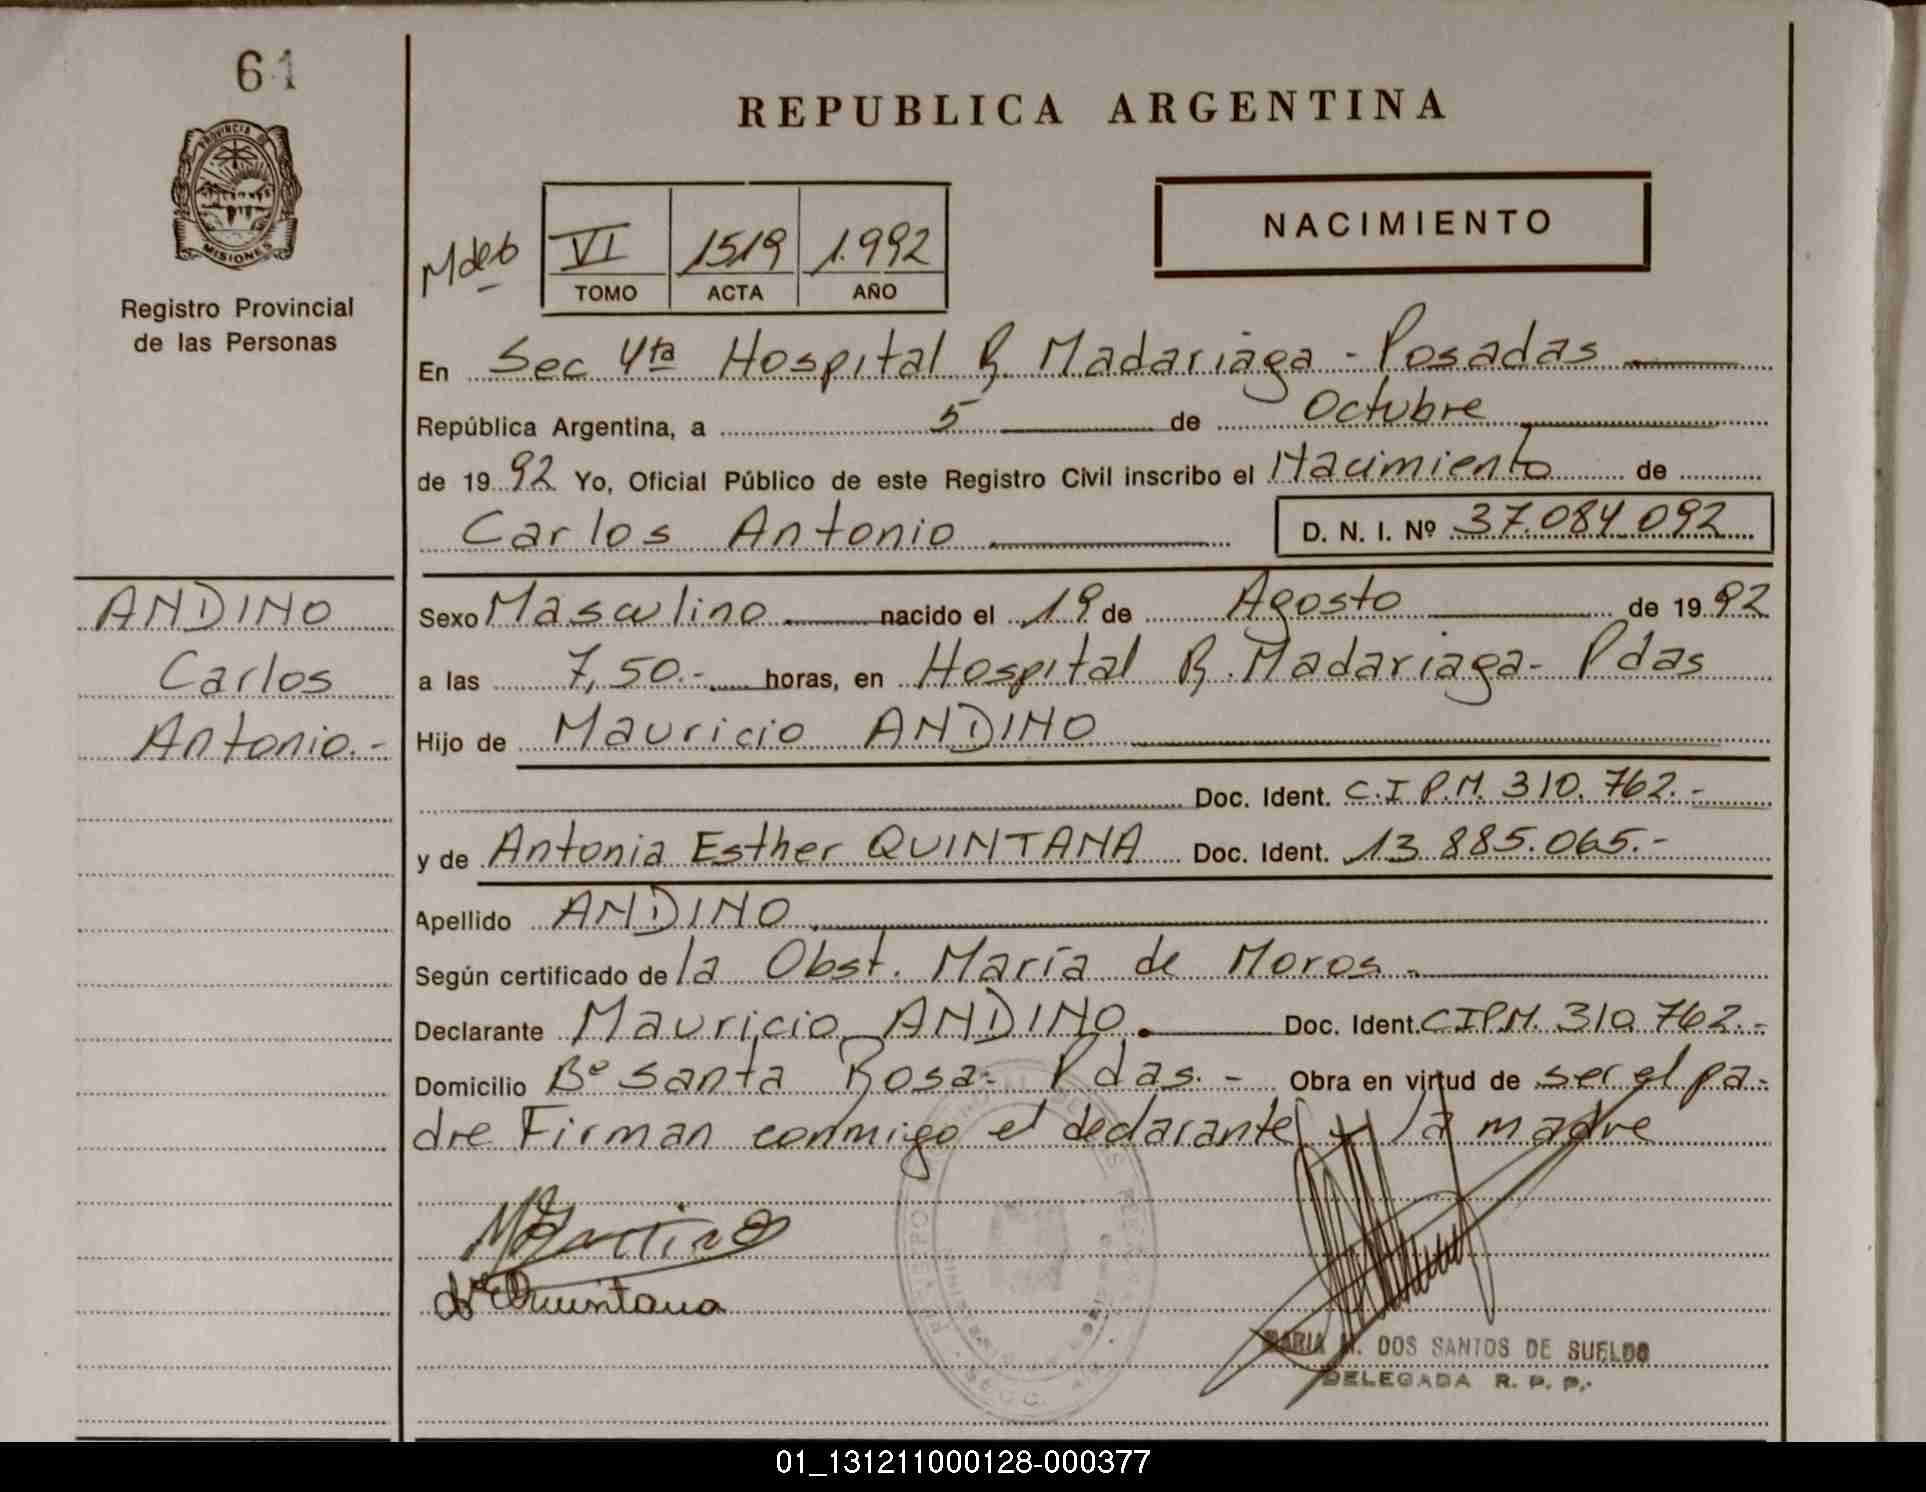 61
PROVINCIA DE
MISIONES
Registro Provincial
de las Personas
REPUBLICA ARGENTINA
NACIMIENTO
VI 1519 1.992
TOMO ACTA AÑO
En Sec 4ta Hospital R. Madariaga - Posadas
República Argentina, a 5 de Octubre
de 1992 Yo, Oficial Público de este Registro Civil inscribo el Nacimiento de
Carlos Antonio D. N. I. Nº 37.084.092
ANDINO
Carlos
Antonio.-
Sexo Masculino nacido el 19 de Agosto de 1992
a las 7,50.- horas, en Hospital R. Madariaga - Pdas
Hijo de Mauricio ANDINO
Doc. Ident. C.I.P.M. 310.762.-
y de Antonia Esther QUINTANA Doc. Ident. 13.885.065.-
Apellido ANDINO
Según certificado de la Obst. María de Moros.
Declarante Mauricio ANDINO. Doc. Ident. CIPM. 310.762.-
Domicilio Bº Santa Rosa - Pdas. - Obra en virtud de ser el pa-
dre Firman conmigo el declarante y la madre
Quintana
MARIA N. DOS SANTOS DE SUELDO
DELEGADA R. P. P.
01_131211000128-000377